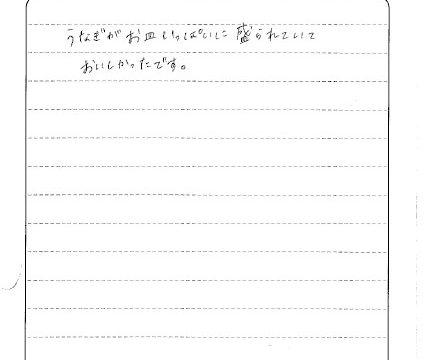 うなぎがお皿いっぱいに盛られていて
おいしかったです。